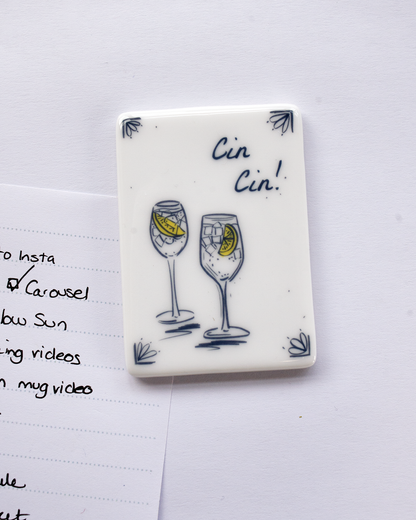 Cin
Cin!
to Insta
Carousel
Sun
videos
mug video